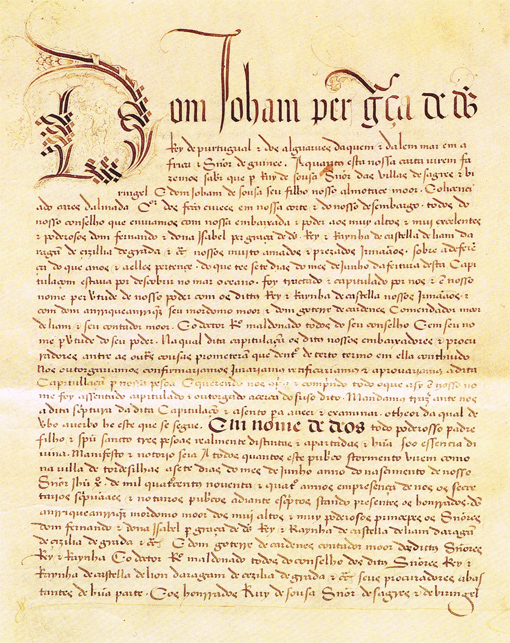 Dom Joham per g̃ca de ds̃
Rey de purtugual & dos algarues daquem & dalem mar em a
frica & Sñor de guinee. A quantos esta nossa carta virem fa
zemos saber que p Ruy de sousa Sñor das villas de sagres & bi
ringel E dom Joham de sousa seu filho nosso almotace moor. E o licenci
ado aires dalmada Cor dos feitos ciuees em nossa corte & do nosso desembargo. todos do
nosso conselho que enuiamos com nossa embaixada & poder aos muy altos & muy excelentes
& poderosos dom fernando & dona Isabel per graça de ds̃. Rey & Raynha de castella de liam da
ragã de cizilia de grada & c̃. nossos muito amados & prezados Irmãaos. sobre a deferẽ
ça do que a nos & a elles pertence. do que tee sete dias do mes de Junho da feitura desta Capi
tulaçom estaua por descobrir no mar oceano. foy trautado & capitulado por nos & em nosso
nome per vtude de nosso poder com os dittos Rey & Raynha de castella nossos Irmãaos. &
com dom anrrique anrriquez seu mordomo moor & dom goterre de cardenes Comendador moor
de liam & seu contador moor. E o doctor Ro maldonado todos do seu conselho E em seu no
me p vtude do seu poder. Na qual dita capitulaçã os ditos nossos embaixadores & procu
radores antre as outras cousas prometerã que dentro de certo termo em ella contheudo
Nos outorgariamos confirmariamos Jurariamos retificariamos & aprouariamos a dita
Capitullaçã p nossa pesoa E querendo nos & comprindo todo o que asy em nosso no
me foy assentado capitulado & outorgado acerca do suso dito. Mandamos trazer ante nos
a dita scriptura da dita Capitulaçã & asento pa a veer & examinar. o theor da qual de
vbo a uerbo he este que se segue. Em nome de deos todo poderosso padre
filho & spũ santo tres pesoas realmente distintas & apartadas & hũa soo essencia di
uina. Manifesto & notorio seja A todos quantos este pubrico stormento virem como
na villa de tordesilhas a sete dias do mes de Junho anno do nascimento de nosso
Sñor Jhũ x̃. de mil quatrocentos nouenta & quatro annos em presença de nos os secre
tarios scpuãaes & notarios pubricos adiante escriptos stando presentes os honrrados dõ
anrrique anrriquez mordomo moor dos muy altos & muy poderosos princepes os Sñores
dom fernando & dona Isabel p graça de ds̃ Rey & Raynha de castella de liam daragã
de cizilia de grada & c̃. E dom goterre de cardenes contador moor dos dittos Sñores
Rey & Raynha E o doctor Ro maldonado todos do conselho dos ditos Sñores Rey &
Raynha de castella de lion daragam de cezilia de grada & c̃. seus procuradores abas
tantes de hũa parte. E os honrrados Ruy de sousa Sñor de sagres & de biringel